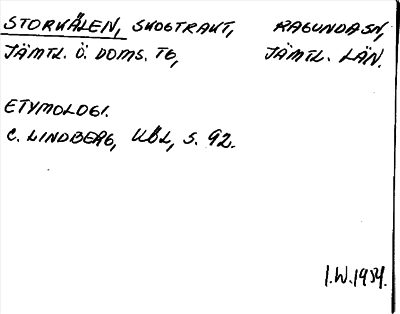 STORKÅLEN, SKOGTRAKT, RAGUNDA SN,
JÄMTL. Ö. DOMS. TG, JÄMTL. LÄN.
ETYMOLOGI.
C. LINDBERG, KÖL, S. 92.
I.W. 1954.